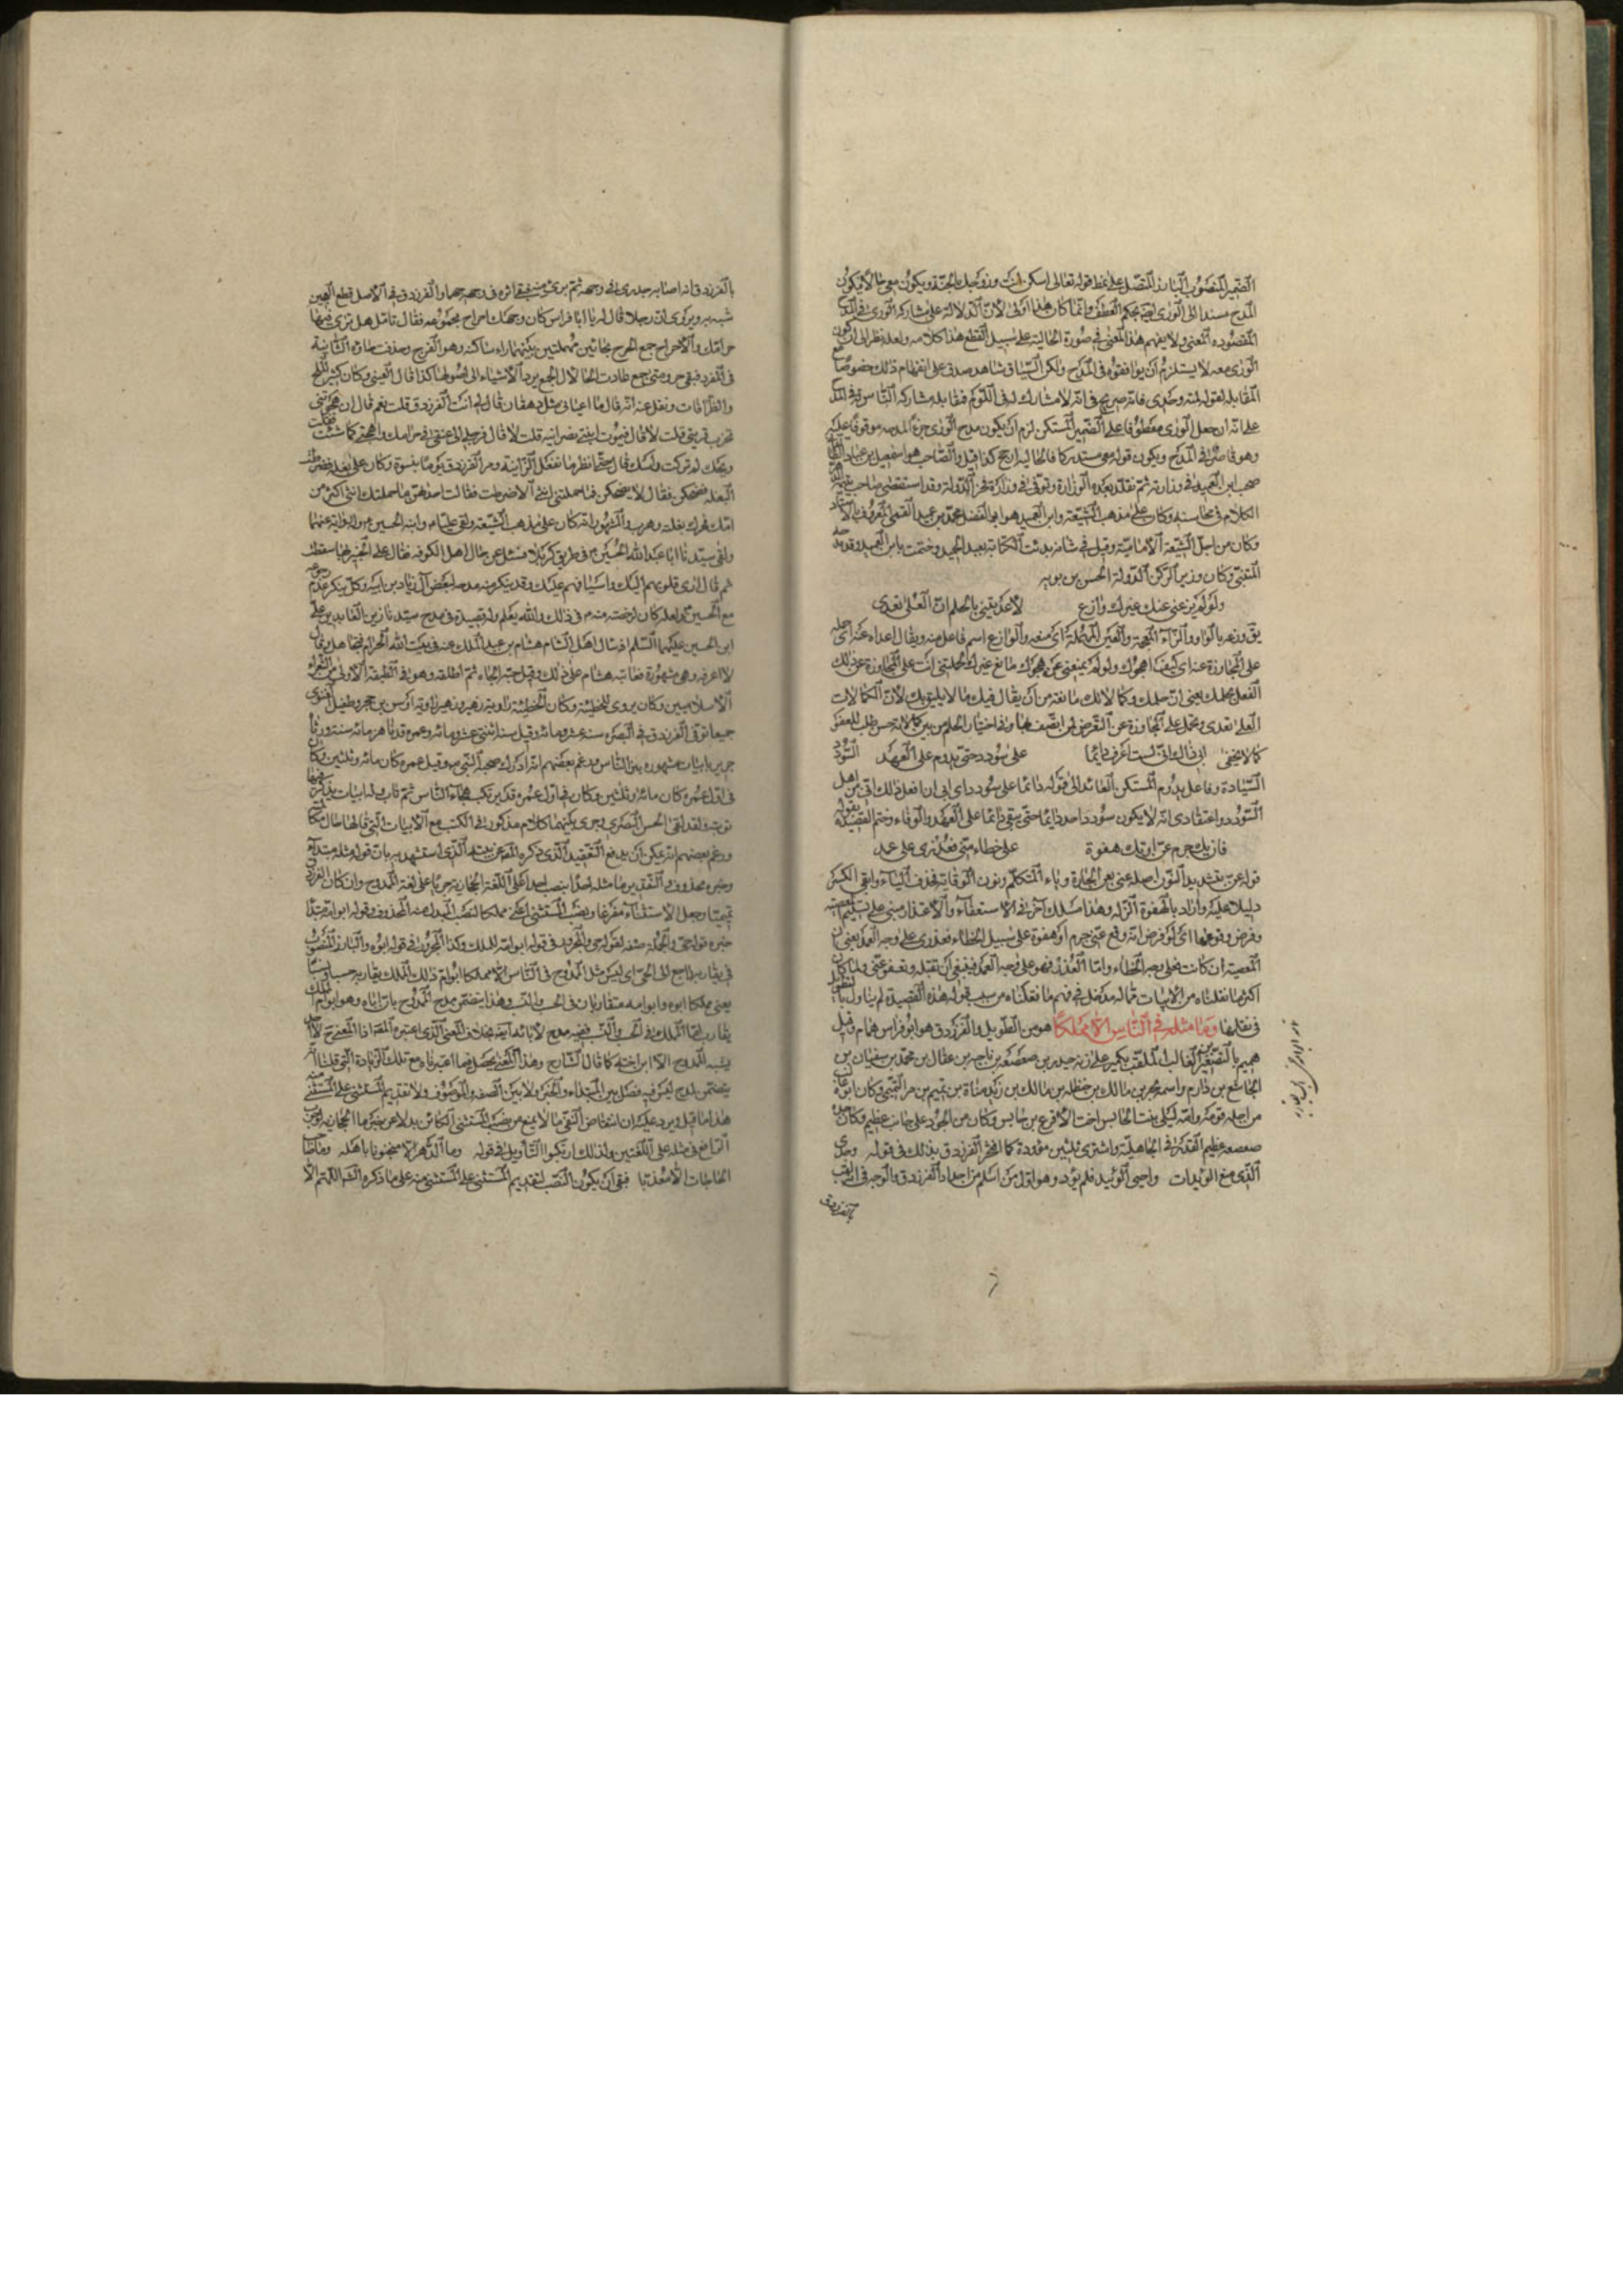 الضمير المنصوب البارز المتصل على نمط قوله تعالى اسكن انت وزوجك الجنة ويكون معى حالا يكون
المدح مسندا الى الورى ايضا بحكم العطف وانما كان هذا اولى لان الدلالة على مشاركة الورى فى المدح
المقصودة المعنى ولا يفهم هذا المعنى فى صورة الحالية على سبيل القطع هذا كلامه ولعله نظر الى ان كون
الورى معه لا يستلزم ان يوافقوه فى المدح ولكن السياق شاهد صدق على انفهام ذلك خصوصا مع
المقابلة لقوله لمته وحدى فانه صريح فى انه لا مشارك له فى اللوم فمقابله مشاركة الناس له فى المدح
على انه ان جعل الورى معطوفا على الضمير المستكن لزم ان يكون مدح الورى جزء المدحه موقوفا عليه
وهو قاصر فى المدح ويكون قوله معى مستدركا فالحالية ارجح كذا قيل والصاحب هو اسمعيل بن عباد
صحب ابن العميد فى وزارته ثم تقلد بعده الوزارة وتوفى فى وزارة فخر الدولة وقد استقصى صاحب يتيمة
الكلام فى محاسنه وكان على مذهب الشيعة وابن العميد هو ابو الفضل محمد بن عميد القمى المعروف بالاستاد
وكان من اجل الشيعة الامامية وقيل فى شانه بدئت الكتابة بعبد الحميد وختمت بابن العميد وقد مدحه
المتنبى وكان وزير الركن الدولة الحسن بن بويه
ولو لم يزعنى عنك غيرك وازع لاعديتنى بالحلم ان العلى تعدى
يق وزعه بالواو والزاء المعجمة والعين المهملة اى منعه والوازع اسم فاعل منه ويقال اعداه عنه اى حمله
على المجاوزة عنه اى كيف اهجوك ولو لم يمنعنى عن هجوك مانع غيرك لحملتنى انت على المجاوزة عن ذلك
الفعل بحلمك يعنى ان حلمك وكمالاتك مانعة من ان يقال فيك ما لا يليق بك لان الكمالات
العلى تعدى وتحمل على المجاوزة عن التعرض لمن اتصف بها وفى اختيار الحلم من بين كمالاته حسن طلب للعفو
كما لا يخفى ابى ذاك انى لست اعرف دائما على سؤدد حتى يدوم على العهد السودد
السيادة وفاعل يدوم المستكن العائد الى قوله دائما على سؤدد اى ابى ان افعل ذلك انى من اهل
السودد واعتقادى انه لا يكون سؤدد احد دائما حتى يبقى دائما على العهد والوفاء وختم القصيدة بقوله
فان يك جرم عن او تك هفوة على خطاء منى فعذرى على عمد
قوله عن بتشديد النون اصله عنى بعن الجارة وياء المتكلم ونون الوقاية فحذف الياء وابقى الكسر
دليلا عليه واراد بالهفوة الزلة وهذا مسلك آخر فى الاستعفاء والاعتذار مبنى على تسليم المعصية
وفرض وقوعها اى لو فرض انه وقع عنى جرم او هفوة على سبيل الخطاء فعذرى على وجه العمد يعنى ان
المعصية ان كانت فعلى وجه الخطاء واما العذر فهو على وجه العمد فينبغى ان تقبله وتعفو عنى ولما كان
اكثر ما نقلناه من الابيات مما له مدخل فى فهم ما نقلناه من سبب قوله هذه القصيدة لم نبال بالتطويل
فى نقلها وما مثله فى الناس الا مملكا هو من الطويل والفرزدق هو ابو فراس همام وقيل
هميم بالتصغير بن الغالب الملقب بكمير على زنة حيدر بن صعصعة بن ناجية بن عقال بن محمد بن سفيان بن
مجاشع بن دارم واسمه بحر بن مالك بن حنظلة بن مالك بن زيد مناة بن تميم بن مر التميمى وكان ابوه غالب
من اجلة قومه وامه ليلى بنت الحابس اخت الاقرع بن حابس وكان من الجود على جانب عظيم وكان جده
صعصعة عظيم القدر فى الجاهلية واشترى ثلثين مؤودة كما افتخر الفرزدق بذلك فى قوله وجدى
الذى منع الوئيدات واحيى الوئيد فلم يؤد وهو اول من اسلم من اجداد الفرزدق والوجه فى تلقب
بالفرزدق
بالفرزدق انه اصابه جدرى فى وجهه ثم برئ منه فبقى اثره فى وجهه جهما والفرزدق فى الاصل قطع العجين
شبه به ويروى ان رجلا قال له يا ابا فراس كان وجهك احراح مجموعة فقال تامل هل ترى فيها
حر امك والاحراح جمع الحرح بحائين مهملتين بينهما راء ساكنة وهو الفرج وحذفت حاؤه الثانية
فى المفرد فبقى حر ومتى جمع عادت الحا لان الجمع يرد الاشياء الى اصولها كذا قال العينى وكان كثير الملح
والظرافات ونقل عنه انه قال ما اعيانى مثل دهقان قال لى انت الفرزدق قلت نعم قال ان هجوتنى
تخرب قريتى قلت لا قال فيموت ابنتى نصرانية قلت لا قال فرجلى الى عنقى فى حر امك واهجنى كما شئت فقلت
ويحك لم تركت راسك قال حتى انظر ما تفعل الزانية ومر الفرزدق يوما بنسوة وكان على بغلة فضرطت
البغلة فضحكن فقال لا يضحكن فما حملتنى انثى الا ضرطت فقالت احداهن ما حملتك انثى اكثر من
امك فحرك بغلته وهرب والمشهور انه كان على مذهب الشيعة ولقى عليا وابنه الحسين ع وله رواية عنهما
ولقى سيدنا ابا عبد الله الحسين ع فى طريق كربلا فسئل عن حال اهل الكوفة فقال على الخبير بها سقطت
ثم قال ارى قلوبهم اليك واسيافهم عليك وقد ينكر منه مدحه لبعض آل زياد بن ابيه وكل ينكر عدم رجوعه
مع الحسين ع ولعله كان لرخصة منه ع فى ذلك والله يعلم وله قصيدة فى مدح سيدنا زين العابدين على
ابن الحسين عليهما السلام اذ سال اهل الشام هشام بن عبد الملك عنه فى بيت الله الحرام فتجاهل وقال
لا اعرفه وهى مشهورة فعاتبه هشام على ذلك وقيل حبه الجاه ثم اطلقه وهو فى الطبقة الاولى من الشعراء
الاسلاميين وكان يروى للحطيئة وكان الحطيئة راوية زهير وزهير راوية اوس بن حجر وطفيل الغنوى
جميعا توفى الفرزدق فى البصرة سنة عشر ومائة وقيل سنة اثنتى عشر ومائة وعمره قد ناهز مائة سنة ورثاه
جرير بابيات مشهورة بين الناس وزعم بعضهم انه ادرك صحبة النبى ص وقيل عمره كان مائة وثلثين وكان
فى اول عمره كان مائة وثلثين وكان فى اول عمره قد يرتكب هجاء الناس ثم تاب وله ابيات يذكر فيها
توبته ولقد لقى الحسن البصرى وجرى بينهما كلام مذكور فى الكتب مع الابيات التى قالها حال
وزعم بعضهم انه يمكن ان يدفع التعقيد الذى ذكره المص عن بيته الذى استشهد به بان قوله مثله مبتداء
وخبره محذوف والتقدير ما مثله احدا بنصب احدا على اللغة الحجازية جريا على لغة الممدوح وان كان الفرزدق
تميميا وجعل الاستثناء مفرغا ونصب المستثنى اعنى مملكا لنصب المبدل منه المحذوف وقوله ابو امه مبتدأ
خبره قوله حى والجملة صفة لقوله حى والمجرور فى قوله ابو امه للملك وكذا المجرور فى قوله ابوه والبارز المنصوب
فى يقاربه راجع الى الحى اى ليس مثل الممدوح فى الناس الا مملكا ابو ام ذلك الملك يقاربه حسبا ونسبا
يعنى مملكا ابوه وابو امه متقاربان فى الحسب والنسب وهذا يتضمن مدح الممدوح بان اباه وهو ابو ام الملك
يقارب الملك فى الحسب والنسب ففيه مدح لابائه ايضا بخلاف المعنى الذى اعتبره المص اذ المعنى ح لا احد
يشبه الممدوح الا ابن اخته كما قال الشارح وهذا المعنى يحصل فيما اعتبرناه مع تلك الزيادة التى قلنا
يتضمن المدح ليس فيه فصل بين المبتداء والخبر ولا بين الصفة والموصوف ولا تقديم المستثنى على المستثنى منه
هذا ما قيل ويرد عليه ان انتقاض النفى بالا يمنع من نصب المستثنى الكائن بدلا عن خبر ما الحجازية لوجوب
الرفع فى مثله على اللغتين ولذلك ارتكبوا التاويل فى قوله وما الدهر الا منجنونا باهله وما صاحب
الحاجات الا معذبا فبقى ان يكون النصب لتقديم المستثنى على المستثنى منه على ما ذكره الش اللهم الا